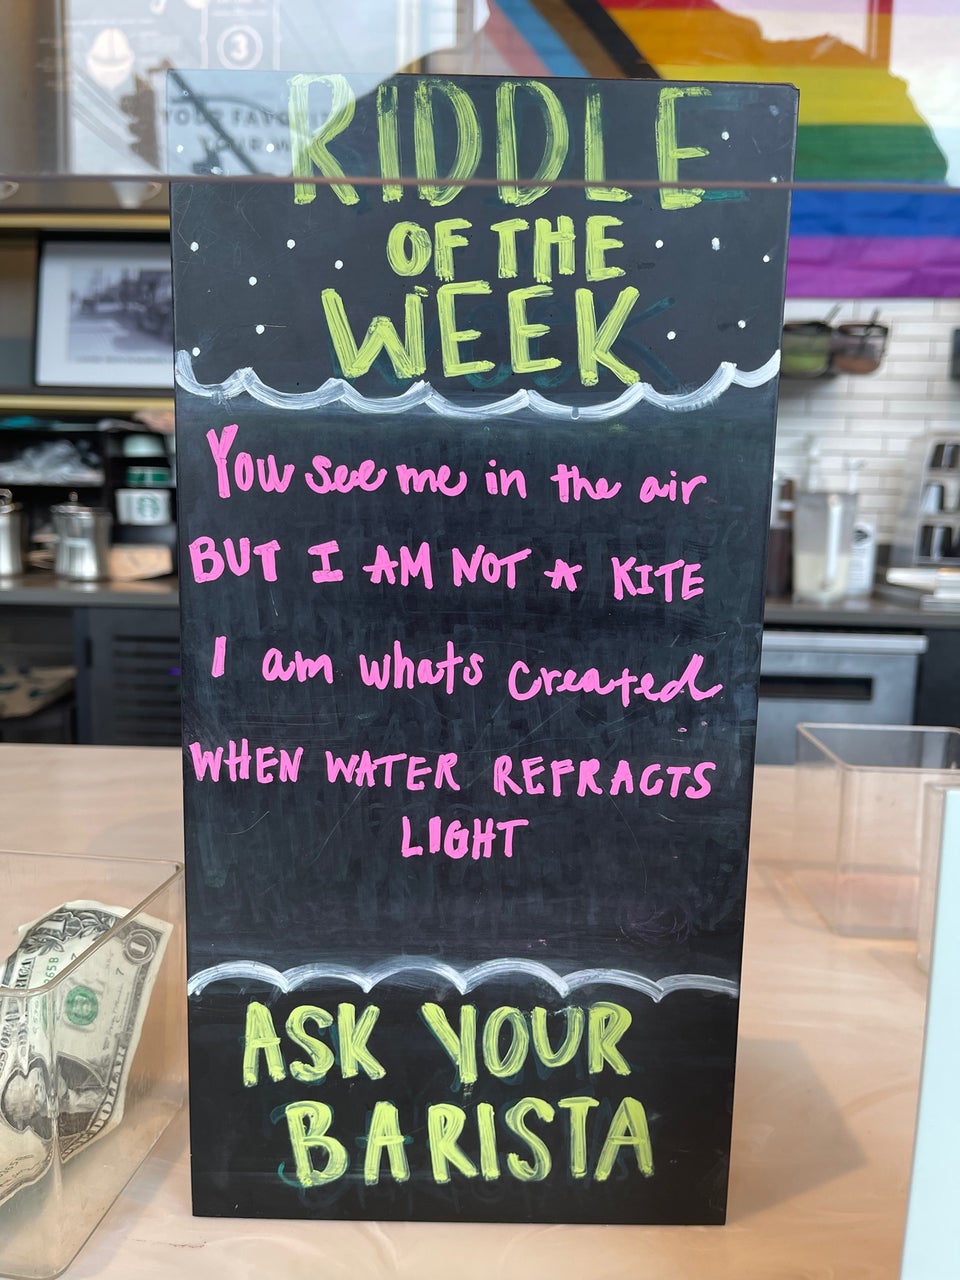 3
YOUR FAVO
YOUR
RIDDLE
OF THE
WEEK
You see me in the air
BUT I AM NOT A KITE
I am whats created
WHEN WATER REFRACTS
LIGHT
ASK YOUR
BARISTA
1